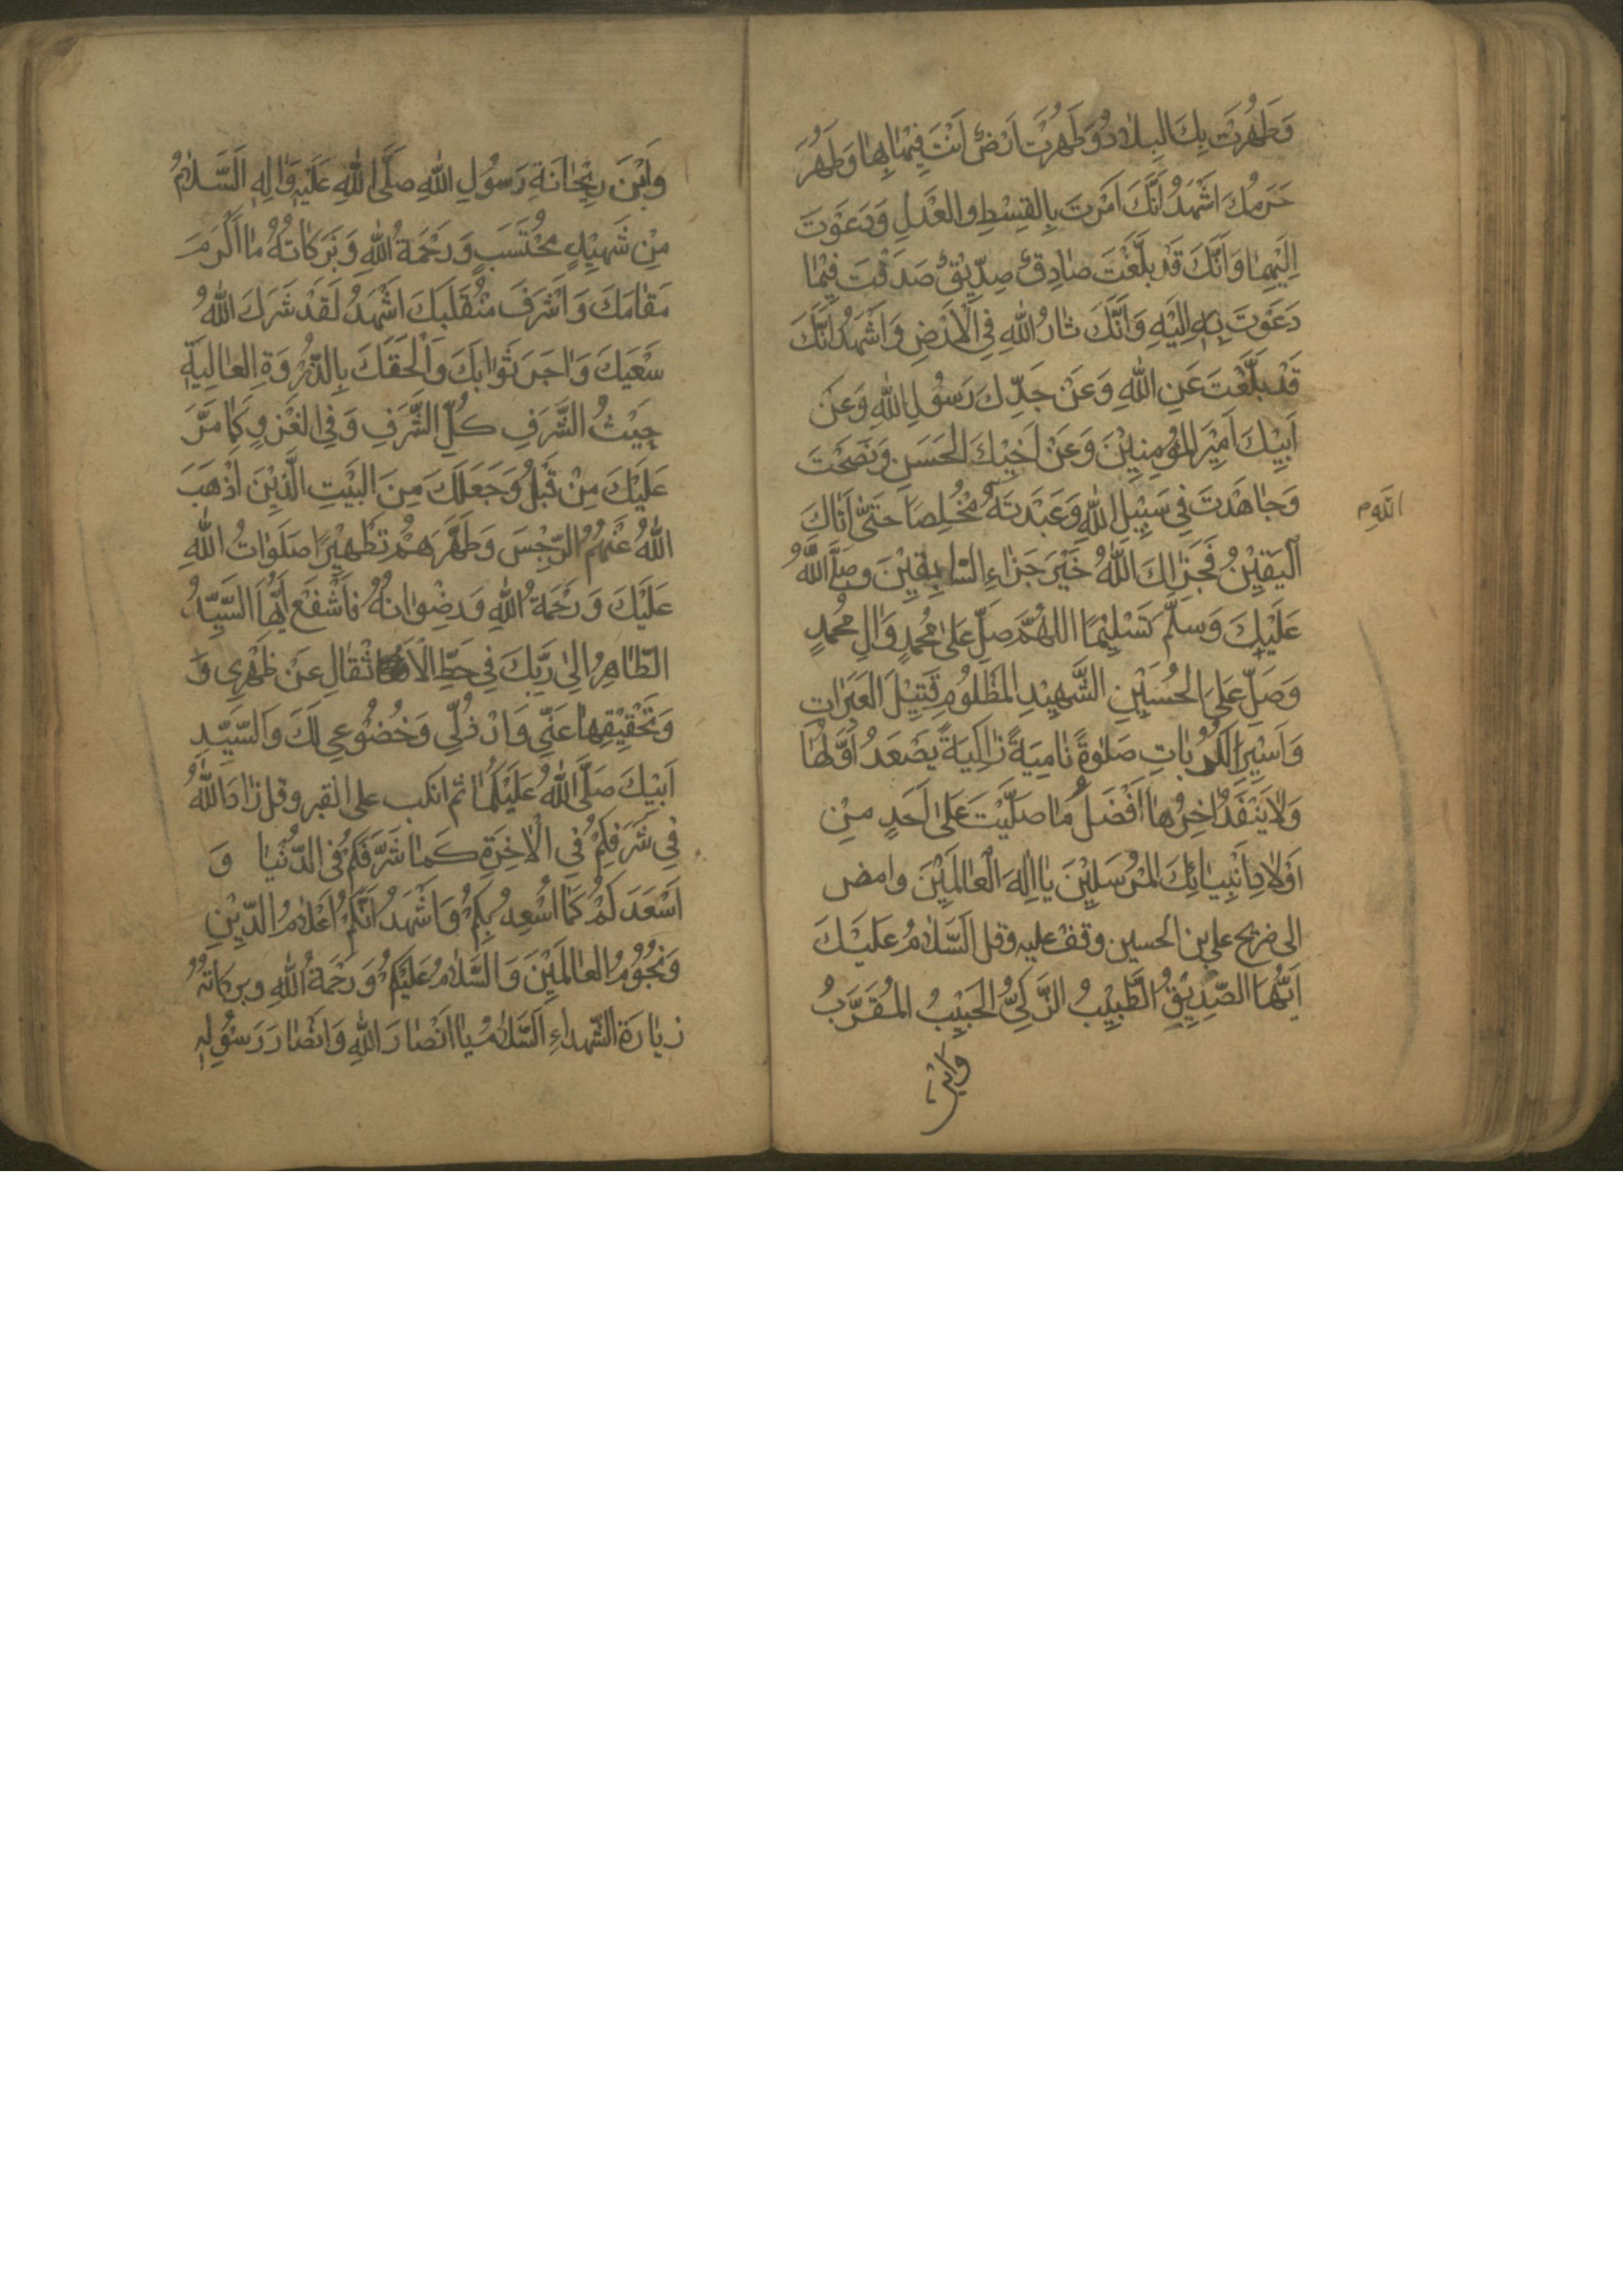 وَطَهُرَتْ بِكَ البِلَادُ وَطَهُرَتْ اَرْضٌ اَنْتَ فِيْهَا بِهَا وَطَهُرَ
حَرَمُكَ اَشْهَدُ اَنَّكَ اَمَرْتَ بِالقِسْطِ والعَدْلِ وَدَعَوْتَ
اِلَيْهِمَا وَاَنَّكَ قَدْ بَلَّغْتَ صَادِقٌ صِدِّيْقٌ صَدَقْتَ فِيْمَا
دَعَوْتَ بِهِ اِلَيْهِ وَاَنَّكَ ثَارُ اللهِ فِي الْاَرْضِ وَاَشْهَدُ اَنَّكَ
قَدْ بَلَّغْتَ عَنِ اللهِ وَعَنْ جَدِّكَ رَسُوْلِ اللهِ وَعَنْ
اَبِيْكَ اَمِيْرِ المُؤْمِنِيْنَ وَعَنْ اَخِيْكَ الحَسَنِ وَنَصَحْتَ
وَجَاهَدْتَ فِي سَبِيْلِ اللهِ وَعَبَدْتَهُ مُخْلِصًا حَتّٰى اَتَاكَ
الْيَقِيْنُ فَجَزَاكَ اللهُ خَيْرَ جَزَاءِ السَّابِقِيْنَ وصَلَّى اللهُ
عَلَيْكَ وَسَلَّمَ تَسْلِيْمًا اللهُمَّ صَلِّ عَلىٰ مُحَمَّدٍ وَاٰلِ مُحَمَّدٍ
وَصَلِّ عَلَى الحُسَيْنِ الشَّهِيْدِ المَظْلُوْمِ قَتِيْلِ العَبَرَاتِ
وَاَسِيْرِ الكُرُبَاتِ صَلٰوةً نَامِيَةً زَاكِيَةً يَصْعَدُ اَوَّلُهَا
وَلَا يَنْفَدُ اٰخِرُهَا اَفْضَلُ مَا صَلَّيْتَ عَلىٰ اَحَدٍ مِنْ
اَوْلَادِ اَنْبِيَائِكَ المُرْسَلِيْنَ يَا اِلٰهَ الْعَالَمِيْنَ وامض
الى ضريح علي بن الحسين وقف عليه وقل اَلسَّلَامُ عَلَيْكَ
اَيُّهَا الصِّدِيْقُ الطَّيِّبُ الزَّكِيُّ الحَبِيْبُ المُقَرَّبُ
وابْنَ
وَابْنَ رِيْحَانَةِ رَسُوْلِ اللهِ صَلَّى اللهِ عَلَيْهِ وَاٰلِهِ اَلسَّلَامُ
مِنْ شَهِيْدٍ مُحْتَسَبٍ وَرَحْمَةُ اللهِ وَبَرَكَاتُهُ مَا اَكْرَمَ
مَقَامَكَ وَاَشْرَفَ مُنْقَلَبَكَ اَشْهَدُ لَقَدْ شَرَكَ اللهُ
سَعْيَكَ وَاَجَرَ ثَوَابَكَ وَاَلْحَقَكَ بِالذُّرْوَةِ العَالِيَةِ
حَيْثُ الشَّرَفِ كُلِّ الشَّرَفِ وَفِي الغَزْوِ كَمَا مَرَّ
عَلَيْكَ مِنْ قَبْلُ وَجَعَلَكَ مِنَ البَيْتِ الَّذِيْنَ اَذْهَبَ
اللهُ عَنْهُمُ الرِّجْسَ وَطَهَّرَهُمْ تَطْهِيْرًا صَلَوَاتُ اللهِ
عَلَيْكَ وَرَحْمَةُ اللهِ وَرِضْوَانُهُ فَاشْفَعْ اَيُّهَا السَّيِّدُ
الطَّاهِرُ اِلىٰ رَبِّكَ فِي حَطِّ الْاَثْقَالِ عَنْ ظَهْرِي وَ
وَتَحْقِيْقِهَا عَنِّي وَاِنْ ذُلِّي وَخُضُوْعِي لَكَ وَالسَّيِّدِ
اَبِيْكَ صَلَّى اللهُ عَلَيْكُمَا ثم انكب على القبر وقل زَادَ اللهُ
فِي شَرَفِكُمْ فِي الْاٰخِرَةِ كَمَا شَرَّفَكُمْ فِي الدُّنْيَا وَ
اَسْعَدَ لَكُمْ كَمَا اَسْعَدَ بِكُمْ وَاَشْهَدُ اَنَّكُمْ اَعْلَامُ الدِّيْنِ
وَنُجُوْمُ العَالَمِيْنَ وَالسَّلَامُ عَلَيْكُمْ وَرَحْمَةُ اللهِ وبركاتُهُ
زِيَارَةُ الشُّهَدَاءِ اَلسَّلَامُ يَا اَنْصَارَ اللهِ وَاَنْصَارَ رَسُوْلِهِ